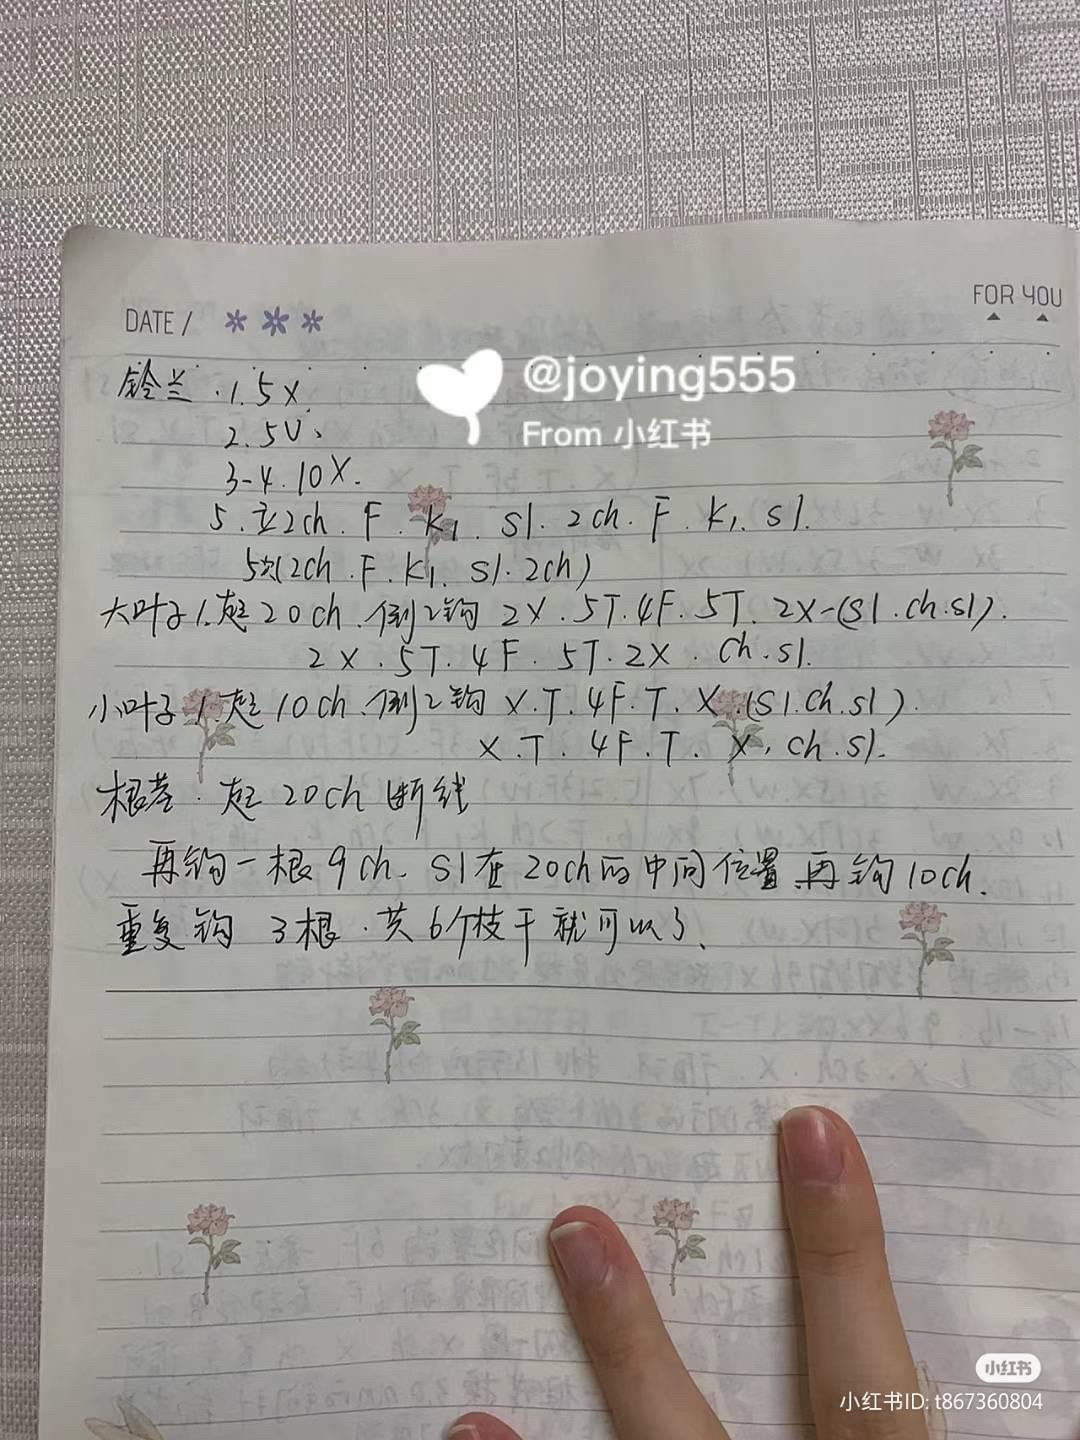 DATE /
FOR YOU
@joying555
From 小红书
铃兰.1.5X.
2.5V、
3-4.10X.
5.立2ch.F.K1.sl.2ch.F.K1.sl.
5次(2ch.F.K1.sl.2ch)
大叶子1.起20ch.倒2钩 2X.5T.4F.5T.2X-(sl.ch.sl).
2X.5T.4F.5T.2X.ch.sl.
小叶子1.起10ch.倒2钩 X.T.4F.T.X.(sl.ch.sl).
X.T.4F.T.X,ch.sl.
根茎.起20ch断线
再钩一根9ch.sl在20ch的中间位置.再钩10ch.
重复钩 3根.共6个枝干就可以了、
小红书
小红书ID: t867360804